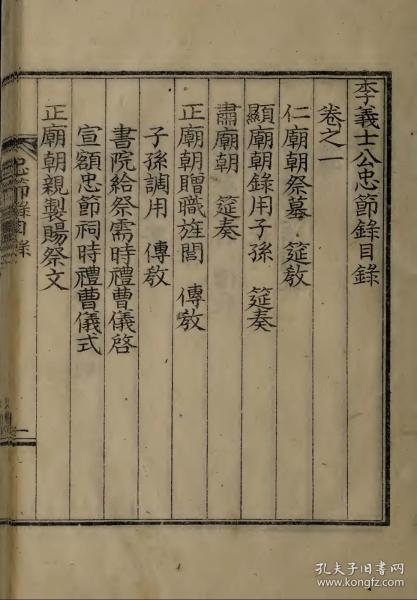 李義士公忠節錄目錄
卷之一
仁廟朝祭墓 筵教
顯廟朝錄用子孫 筵奏
肅廟朝 筵奏
正廟朝贈職旌閭 傳教
子孫調用 傳教
書院給祭需時禮曹儀啓
宣額忠節祠時禮曹儀式
正廟朝親製賜祭文
忠節錄目錄
一
孔夫子旧书网
www.kongfz.com